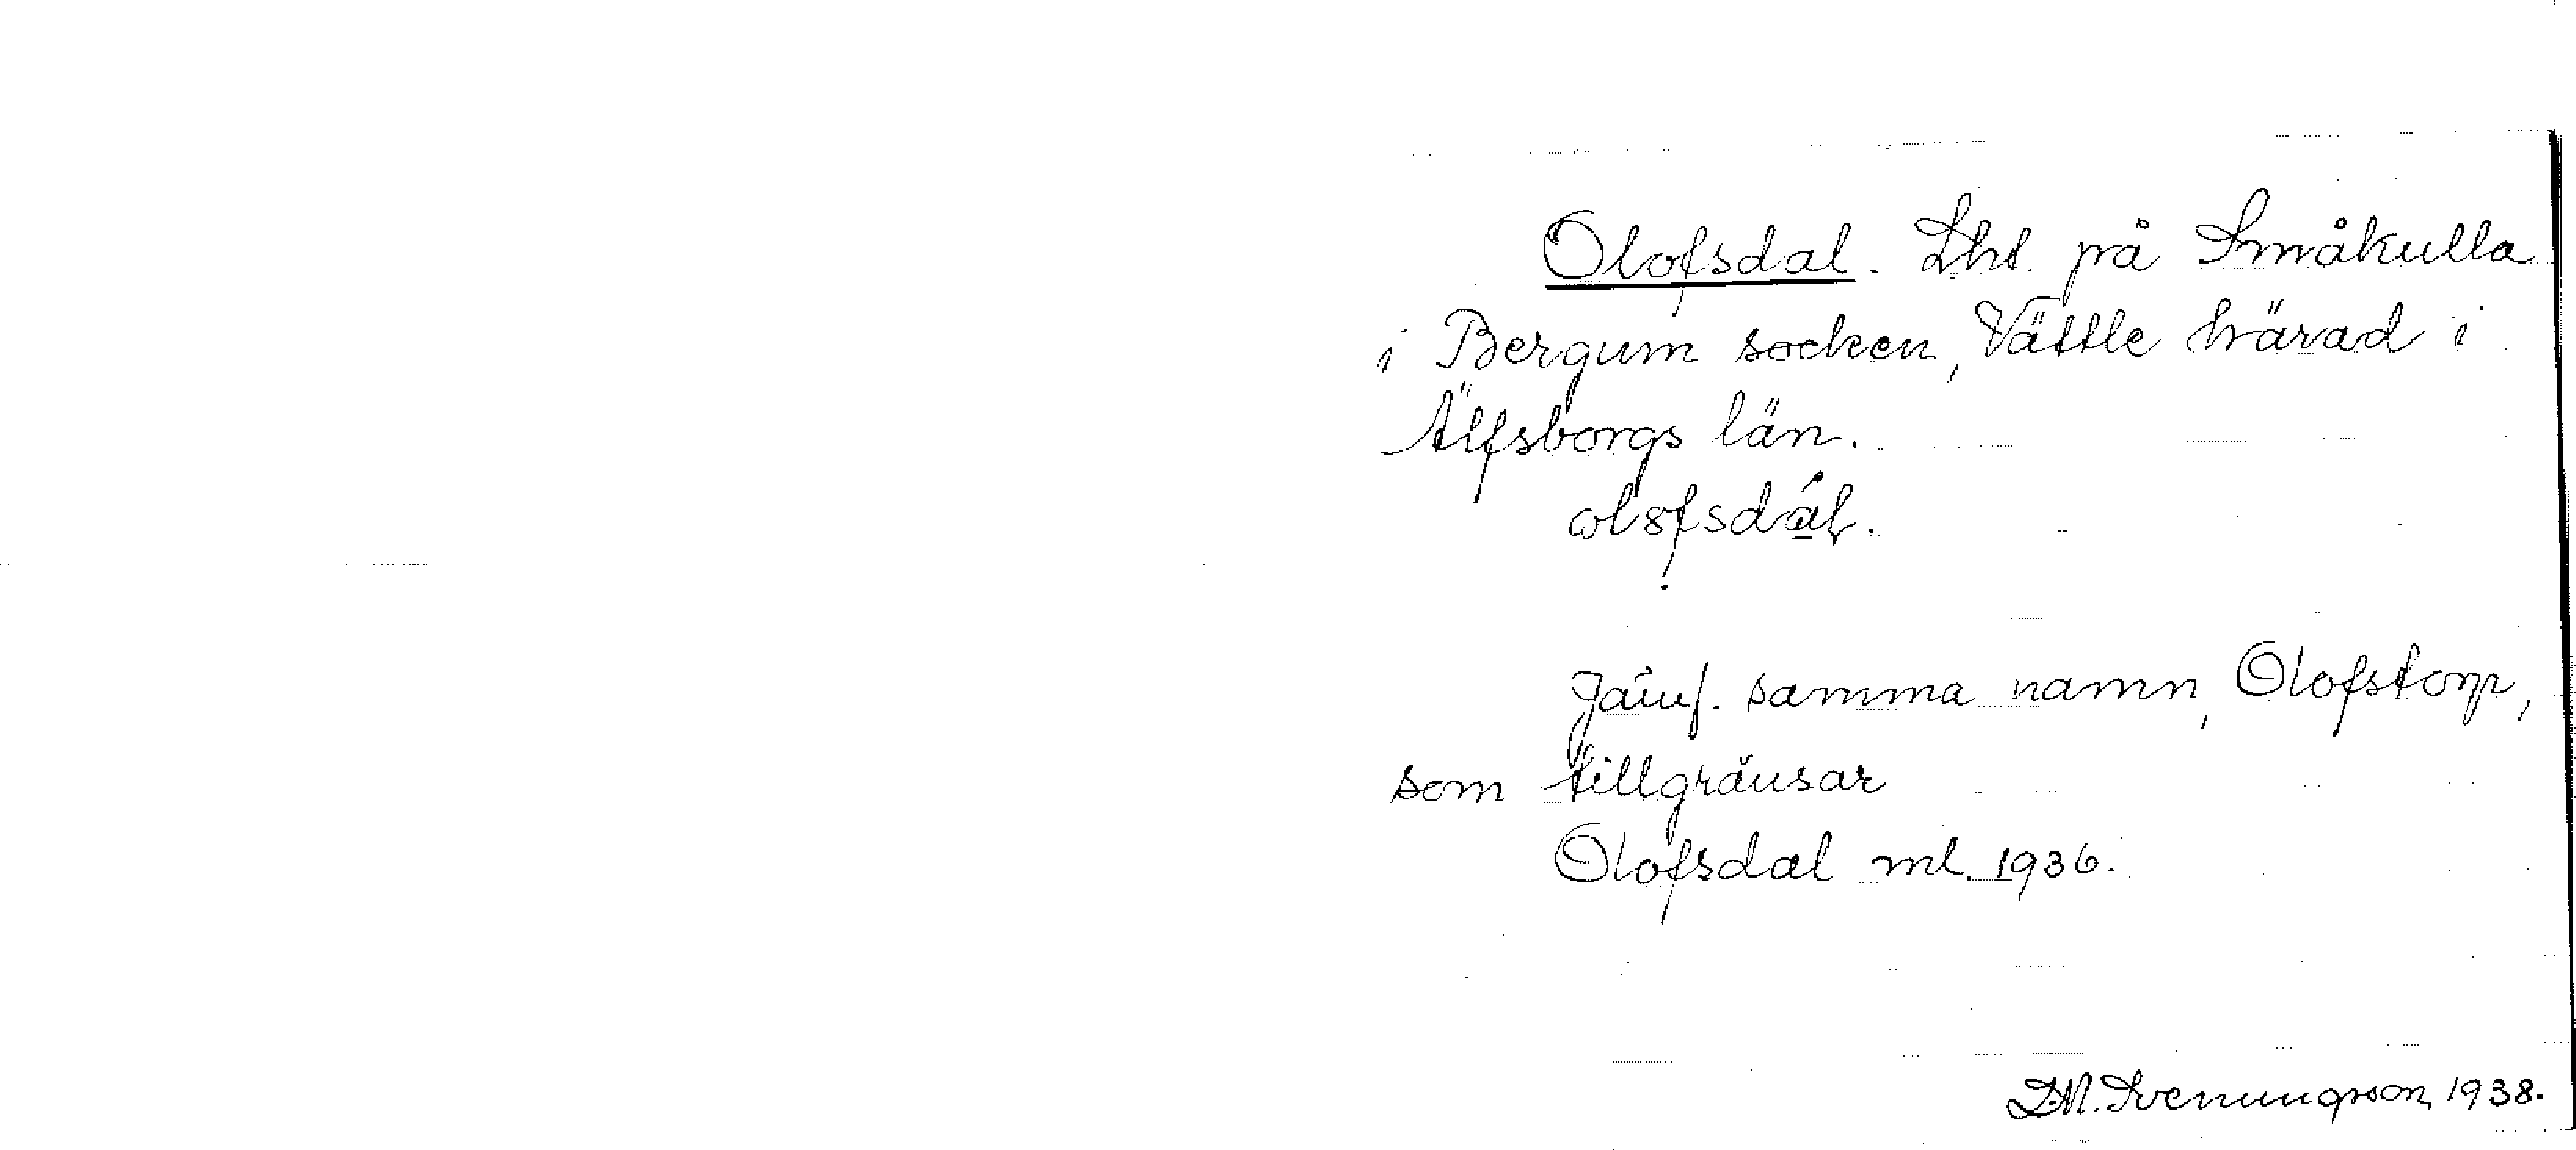 Olofsdal. Lht på Småkulla
i Bergum socken, Vättle härad i
Älfsborgs län.
olofsdál.
Jämf. samma namn, Olofstorp,
som tillgränsar
Olofsdal ml. 1936.
D.M. Svenungsson 1938.